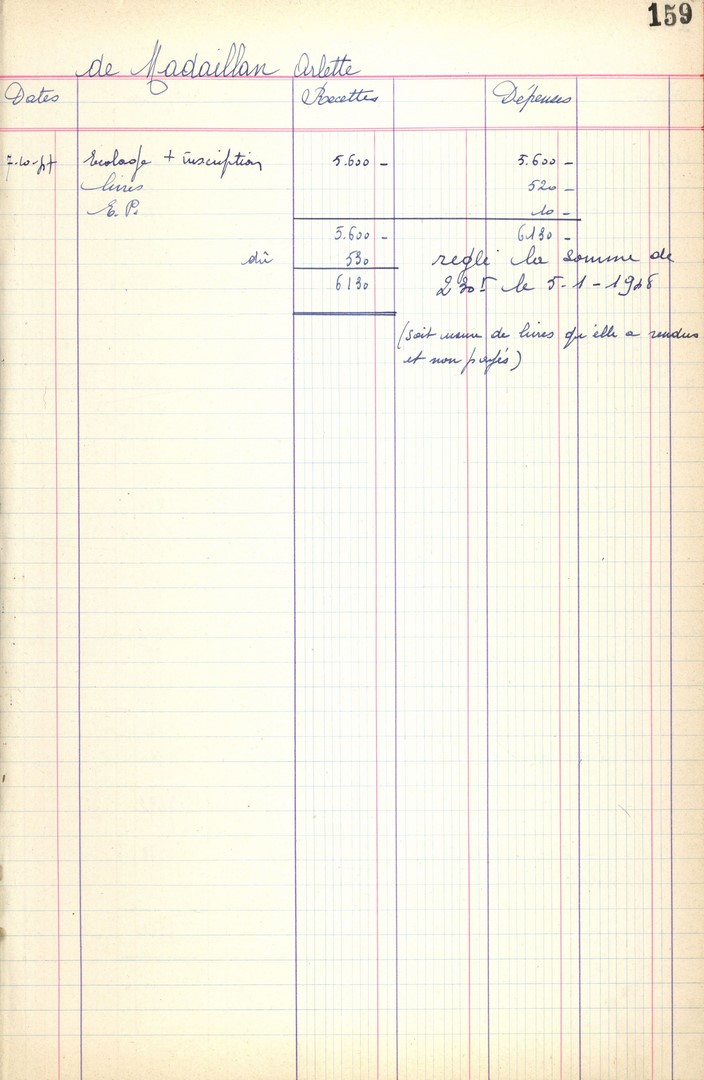 159
de Madaillan Arlette
Dates Recettes Dépenses
7-10-47 Ecolage + inscription 5.600 - 5.600 -
livres 520 -
E.P. 10 -
5.600 - 6130 -
dû 530 réglé la somme de
6130 230 F le 5-1-1948
(soit usure de livres qu'elle a rendus
et non payés)